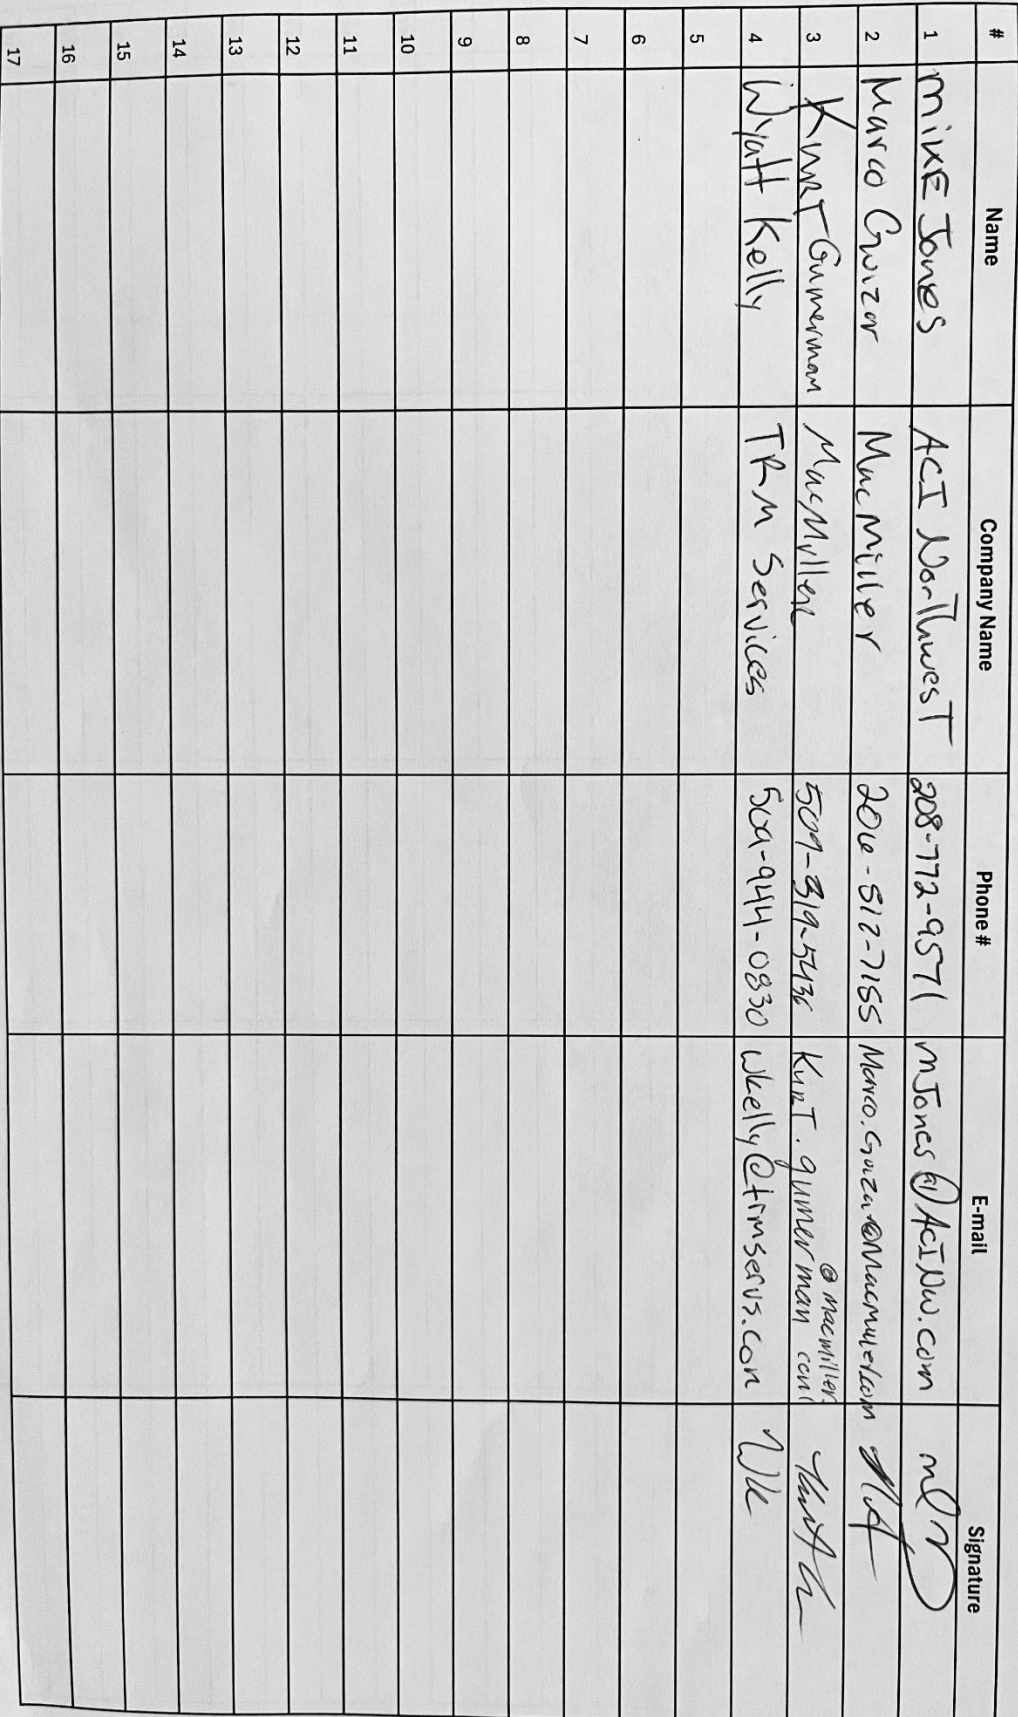 # Name Company Name Phone # E-mail Signature
1 MIKE Jones ACI NorThwesT 208-772-9571 mJones@ACINW.com
2 Marco Guizar MacMiller 206-512-7155
3 KURT Gumerman MacMiller 509-319-5436 KURT.gumerman @macmiller. com
4 Wyatt Kelly TRM Services 509-944-0830 wkelly@trmservs.com
5
6
7
8
9
10
11
12
13
14
15
16
17